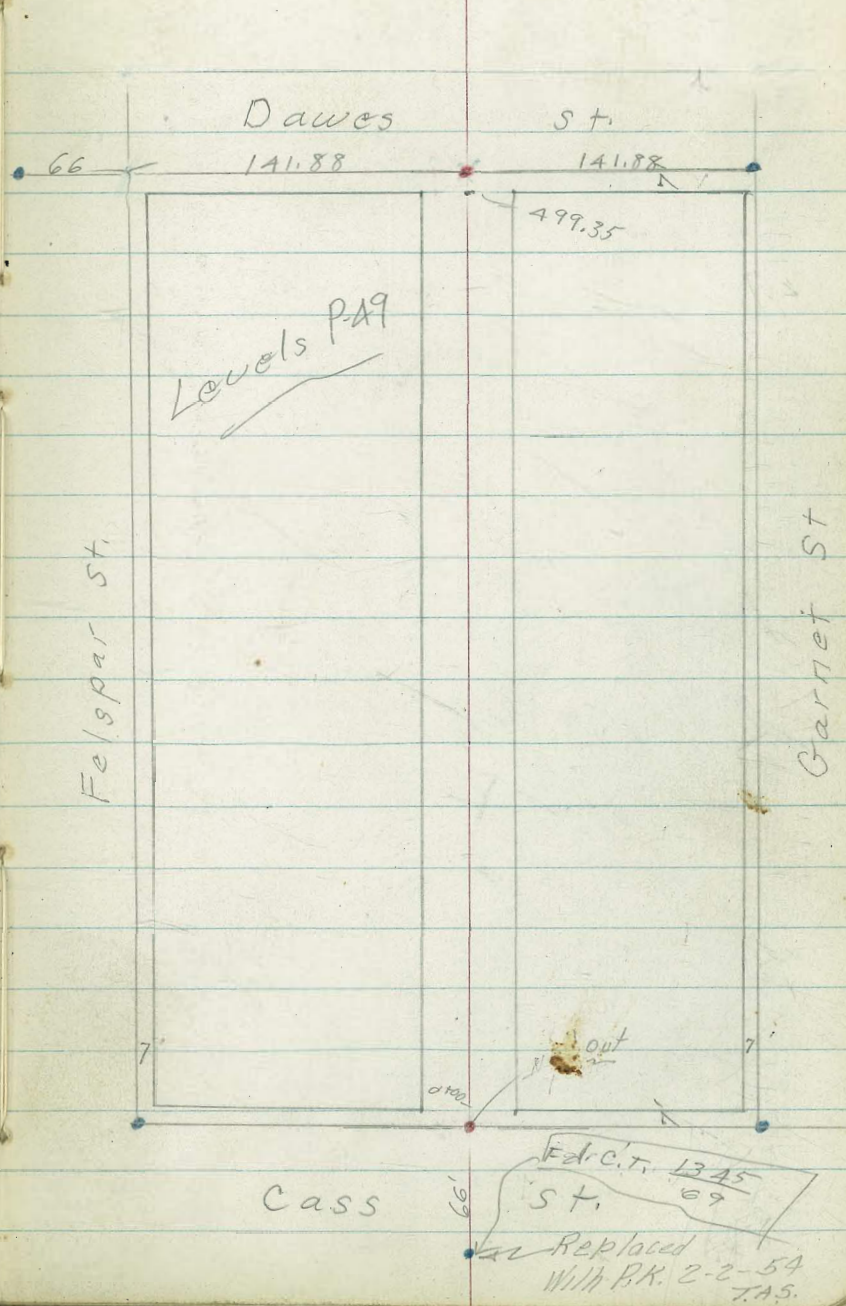 Dawes St.
66 141.88 141.88
7
499.35
Levels P-A9
Felspar St.
Garnet St
7 7'
out
0+00
7'
Fd. C.T. 1345
69
Cass 66' St.
Replaced
With P.K. 2-2-54
T.A.S.